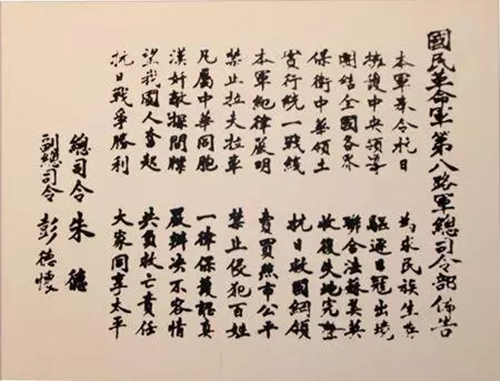 國民革命軍第八路軍總司令部佈告
本軍奉令抗日 為求民族生存
擁護中央領導 驅逐日寇出境
團結全國各界 聯合法蘇美英
保衛中華領土 收復失地完整
實行統一戰線 抗日救國綱領
本軍紀律嚴明 賣買照市公平
禁止拉夫拉車 禁止侵犯百姓
凡屬中華同胞 一律保護認真
漢奸敵探間諜 嚴辦決不容情
望我國人奮起 共負救亡責任
抗日戰爭勝利 大家同享太平
總司令 朱德
副總司令 彭德懷